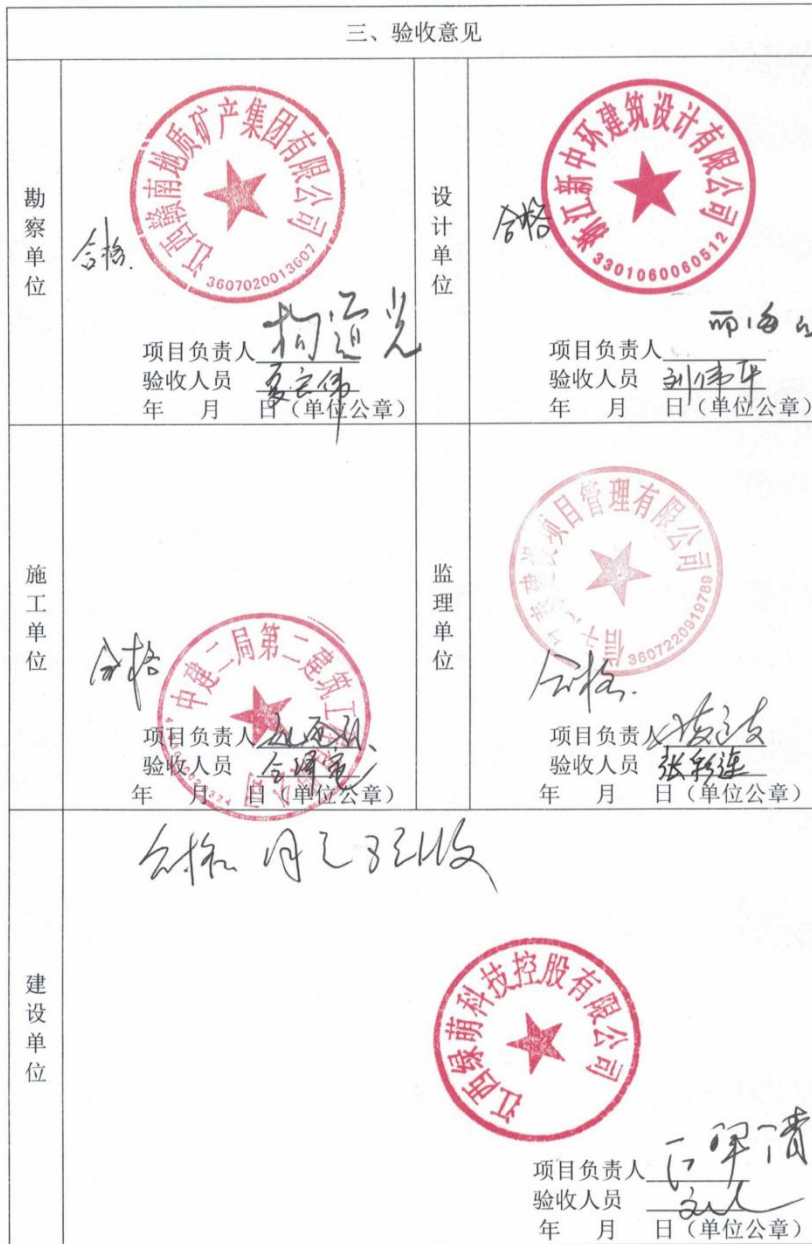 三、验收意见
勘察单位
江西赣南地质矿产集团有限公司
3607020013607
合格
项目负责人
验收人员
年 月 日（单位公章）
设计单位
浙江新中环建筑设计有限公司
3301060060512
合格
项目负责人
验收人员 刘伟平
年 月 日（单位公章）
施工单位
中建二局第二建筑工
合格
项目负责人
验收人员
年 月 日（单位公章）
监理单位
建设项目管理有限公司
3607220919789
合格
项目负责人
验收人员 张彩连
年 月 日（单位公章）
建设单位
合格 同意验收
江西绿萌科技控股有限公司
项目负责人
验收人员
年 月 日（单位公章）